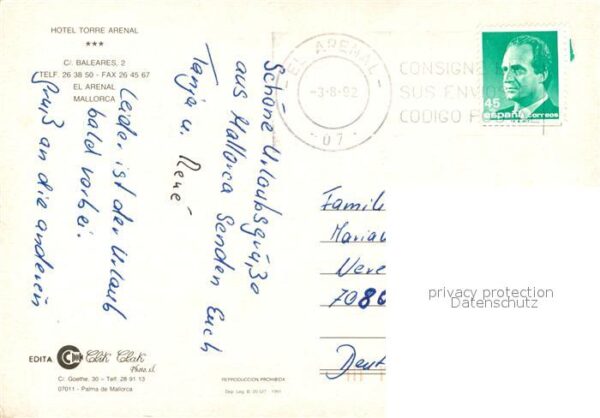 HOTEL TORRE ARENAL
★★★
C/. BALEARES, 2
TELF. 26 38 50 - FAX 26 45 67
EL ARENAL
MALLORCA
Schöne Urlaubsgrüße
aus Mallorca Senden Euch
Tanja u. René
Leider ist der Urlaub
bald vorbei.
Gruß an die anderen
EL ARENAL
-3-8-92
07
CONSIGNE
SUS ENVIOS
CODIGO P
45
españa correos
Famili
Maria
Vere
7080
Deut
privacy protection
Datenschutz
EDITA Clik Clak
Photo, s.l.
C/. Goethe, 30 - Telf. 28 91 13
07011 - Palma de Mallorca
REPRODUCCION PROHIBIDA
Dep. Leg. B.